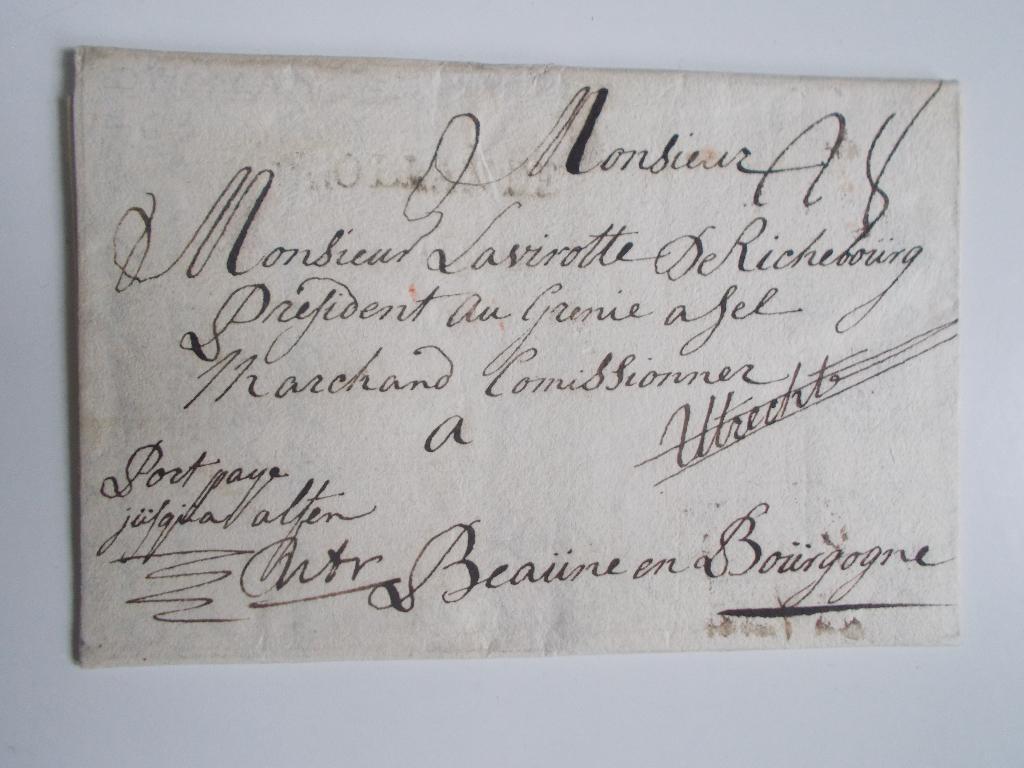 Monsieur
Monsieur Lavirotte De Richeboürg
President au Grenie a sel
Marchand Comissionner
a
Utrecht
Port paye
jüsqua alsen
Beaüne en Boürgogne